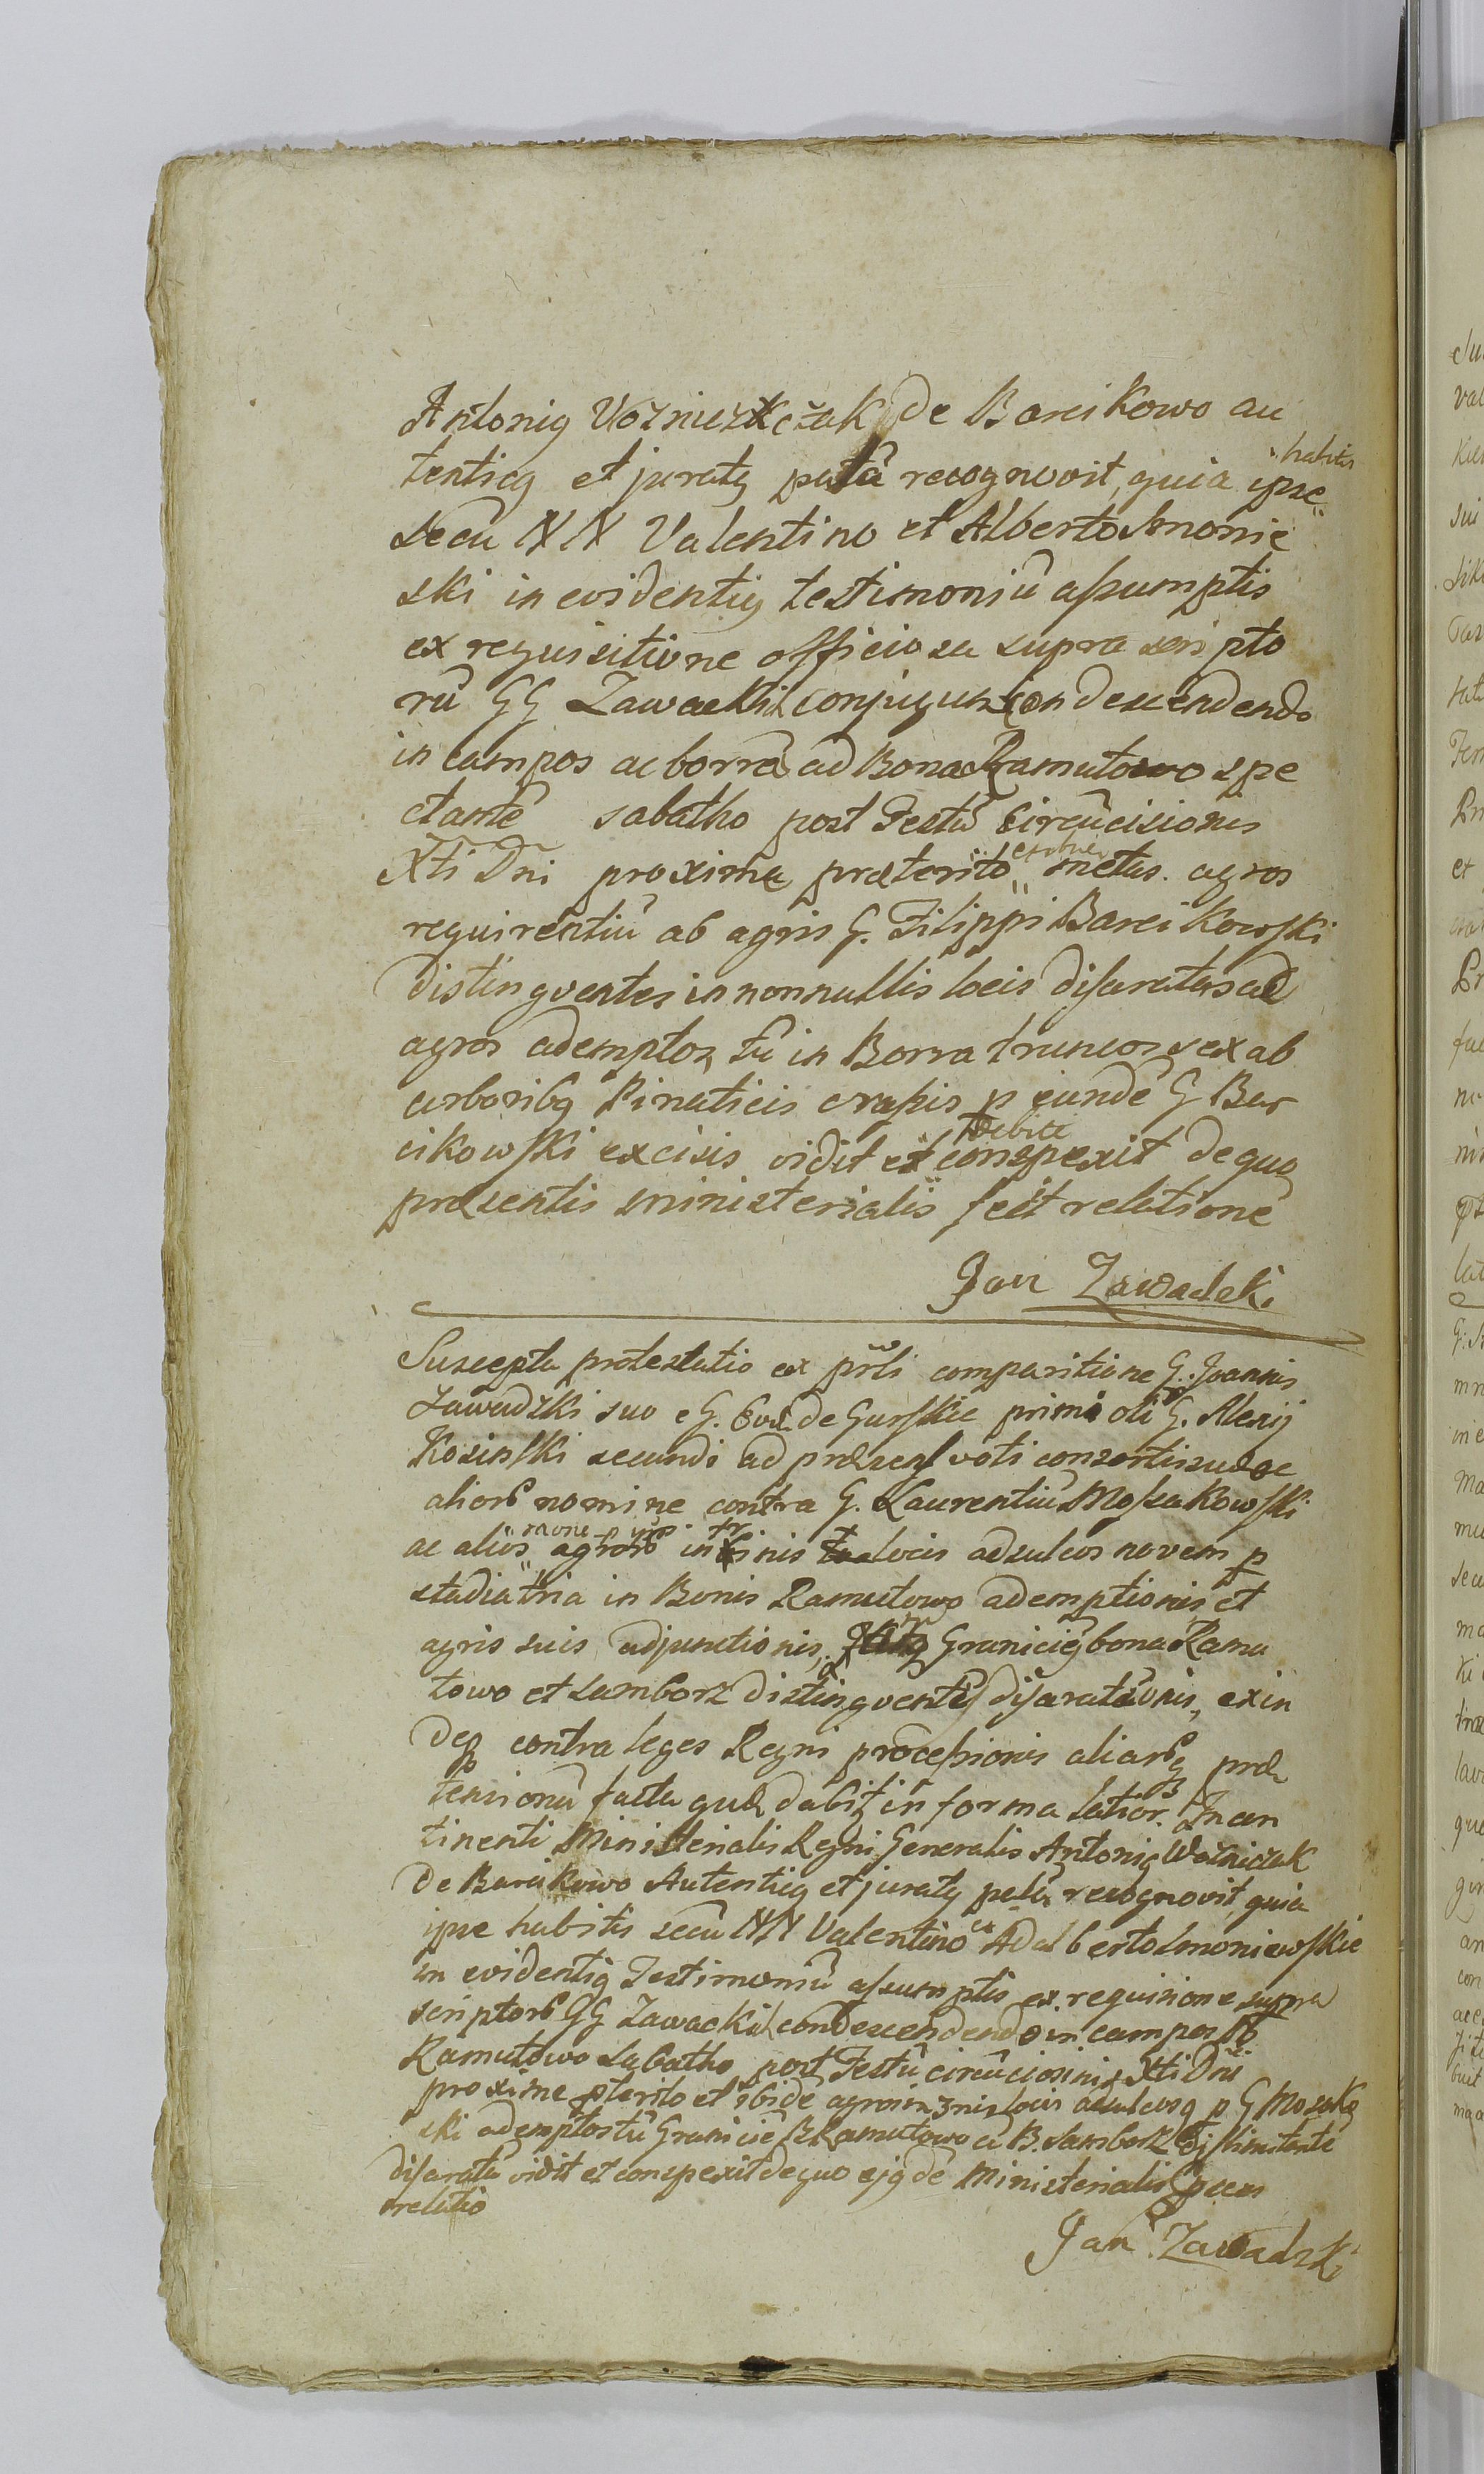 Antonig Vozniezkczak de Barcikowo au
tenticg et juratg palā recognovit, quia ipse habitis
secū NN Valentino et Alberto Smonie
ski in evidentig testimoniū aſsumptis
ex requisitione officiosa supra scripto
rū GG Zawackich conjugum condescendendo
in campos ac borra ad Bona Ramutowo spe
ctantē sabatho post Festū Circūcisionis
Xti Dni proxime præterito metas agros
requirentiū ab agris G. Filippi Barcikowſki
distingventes in nonnullis locis diſaratas ad
agros ademptos, tū in Borra truncos sex ab
arboribg Pinaticis craſsis p eundē G Bar
cikowſki excisis vidit et debite conspexit de quo
præsentis ministerialis fecit relationē
Jan Zawadzki
Suscepta protestatio ex prli comparitione G. Joannis
Zawadzki suo e G. Evæ de Gurſkie primi oli G. Alexij
Kosinſki secundi ad præsens voti consortis suæ ac
aliorū nomine contra G. Laurentiū Moſsakowſki
ac alios raōne agrorū in trinis locis ad sulcos novem p
stadia tria in Bonis Ramutowo ademptionis et
agris suis adjunctionis, Graniciēg bona Ramu
towo et Samborz distingventis diſarationis, exin
deq contra leges Regni proceſsionis aliarūg præ
tensionū facta quæ dabitz in forma latior. Incon
tinenti Ministerialis Regni Generalis Antonig Wozniczak
de Barcikowo Autenticg et juratg palā recognovit quia
ipse habitis secū NN Valentino et Adalberto Smoniewſkie
in evidentig Testimoniū aſsumptis ex requisitione supra
scriptorū GG Zawackich condescendendo in campos
Ramutowo Sabatho post Festū circūcisionis Xti Dni
proxime pterito et ibidē agros in 3nis locis ad sulcos 9 p G Mosako
ski ademptos tū Graniciē B Ramutowo a B. Samborz diſlimitantē
diſaratā vidit et conspexit de quo ejgdē Ministerialis præsens
relatio
Jan Zawadzki